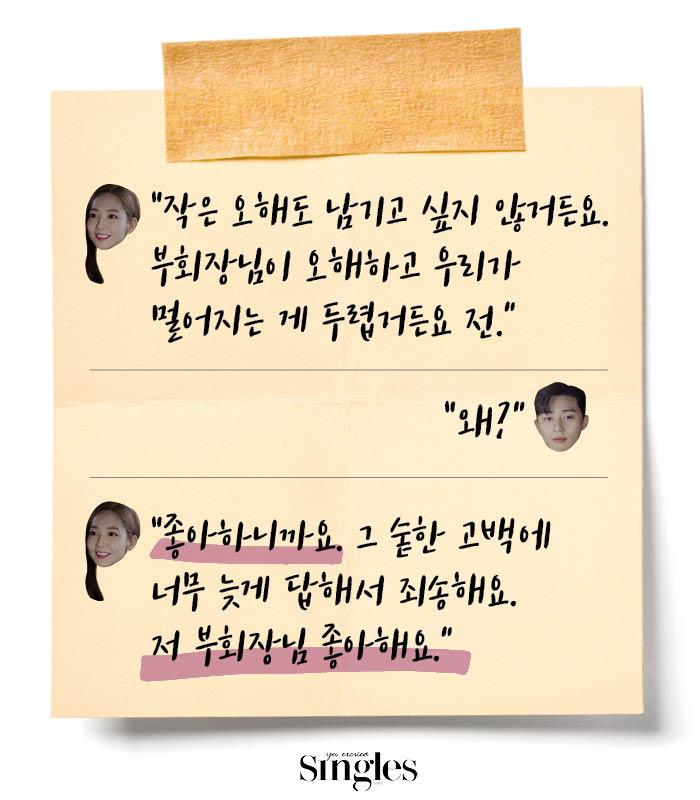 "작은 오해도 남기고 싶지 않거든요.
부회장님이 오해하고 우리가
멀어지는 게 두렵거든요 전."
"왜?"
"좋아하니까요. 그 숱한 고백에
너무 늦게 답해서 죄송해요.
저 부회장님 좋아해요."
Singles